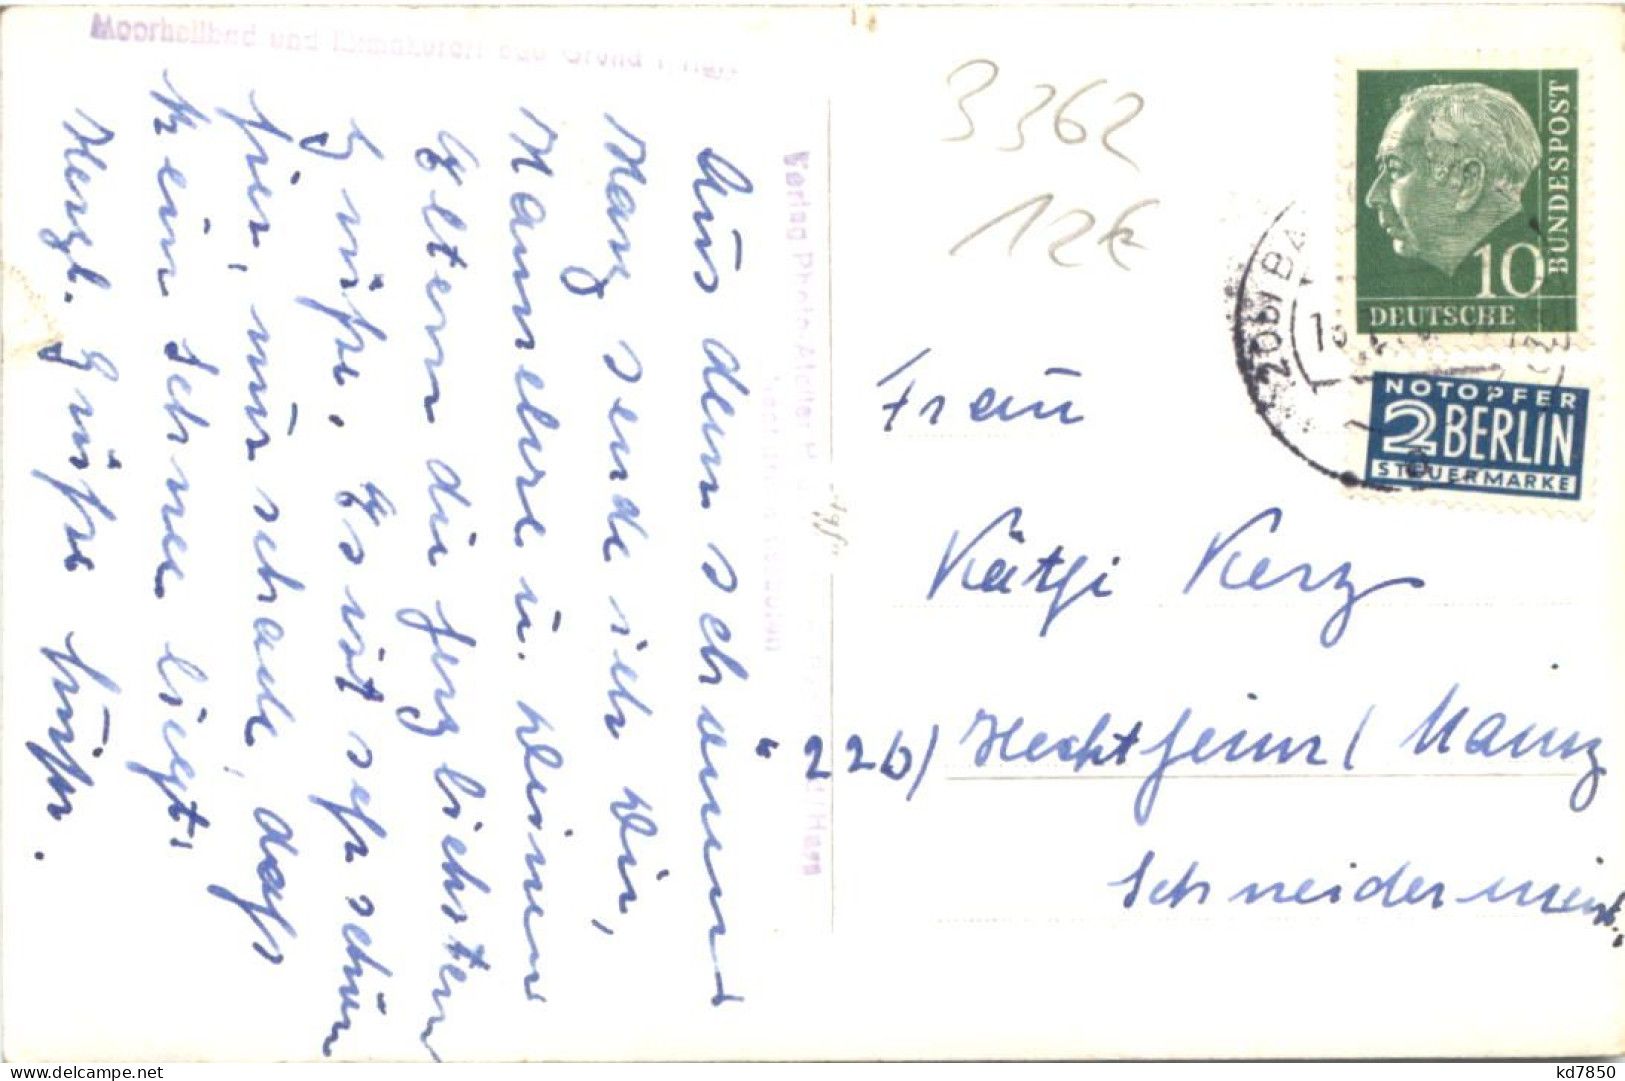 Moorheilbad und Klimakurort Bad Grund i. Harz
Aus dem schönen
Harz sende ich Dir,
Hannelore u. Deinen
Eltern die herzlichsten
Grüße. Es ist sehr schön
hier, nur schade, daß
kein Schnee liegt.
Herzl. Grüße
Verlag Photo-Atelier
3362
12€
BUNDESPOST
10
DEUTSCHE
NOTOPFER
2 BERLIN
STEUERMARKE
20b BA
Frau
Käthi Kerz
22b) Hechtsheim / Mainz
Schneider
kd7850